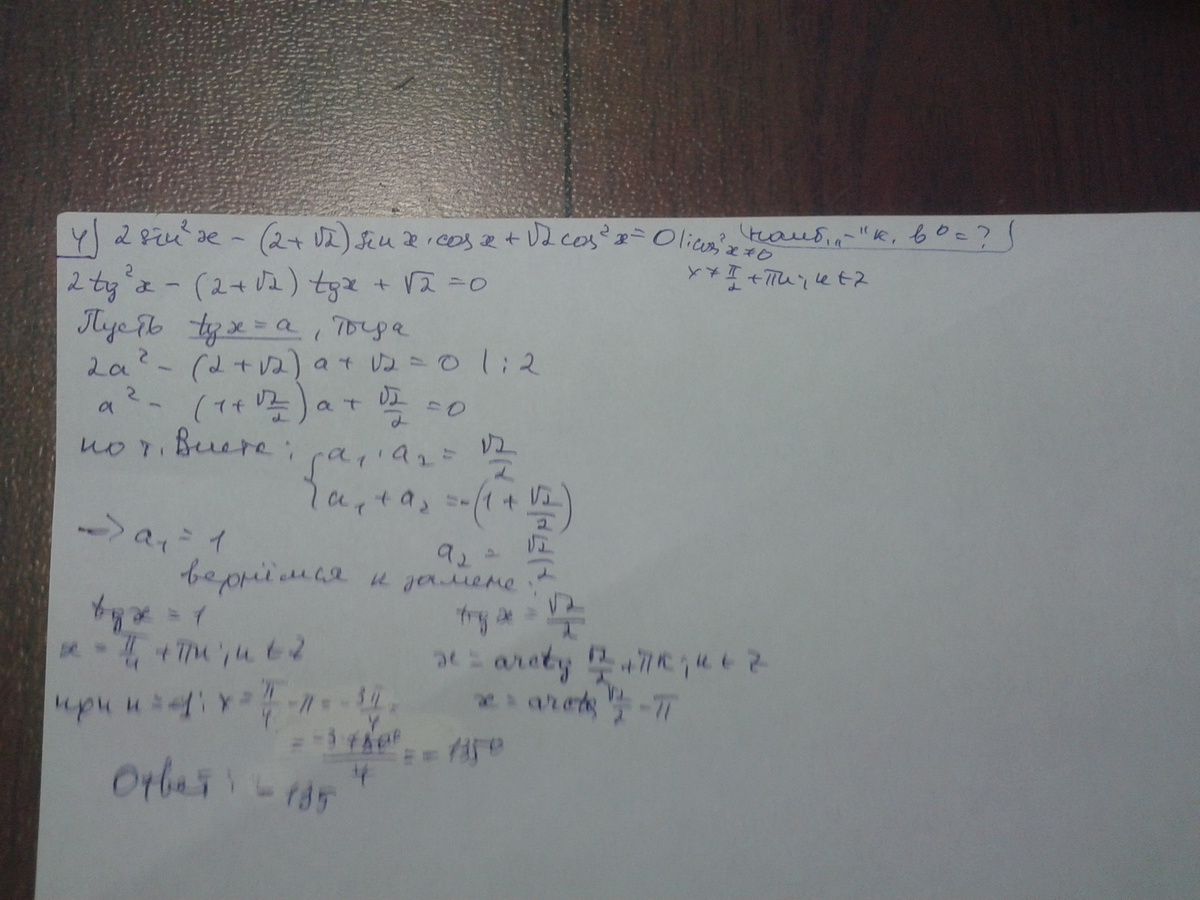 4) 2 sin²x - (2+√2) sin x · cos x + √2 cos²x = 0 |: cos²x ≠ 0 (наиб. „-" к. в ° = ?)
x ≠ π/2 + πn; n ∈ Z
2 tg²x - (2+√2) tg x + √2 = 0
Пусть tg x = a, тогда
2a² - (2+√2) a + √2 = 0 |: 2
a² - (1 + √2/2) a + √2/2 = 0
по т. Виета: { a₁ · a₂ = √2/2
a₁ + a₂ = -(1 + √2/2)
→ a₁ = 1 a₂ = √2/2
вернёмся к замене:
tg x = 1 tg x = √2/2
x = π/4 + πn; n ∈ Z x = arctg √2/2 + πk; k ∈ Z
при n = -1: x = π/4 - π = -3π/4 = x = arctg √2/2 - π
= -3·180°/4 = -135°
Ответ: -135